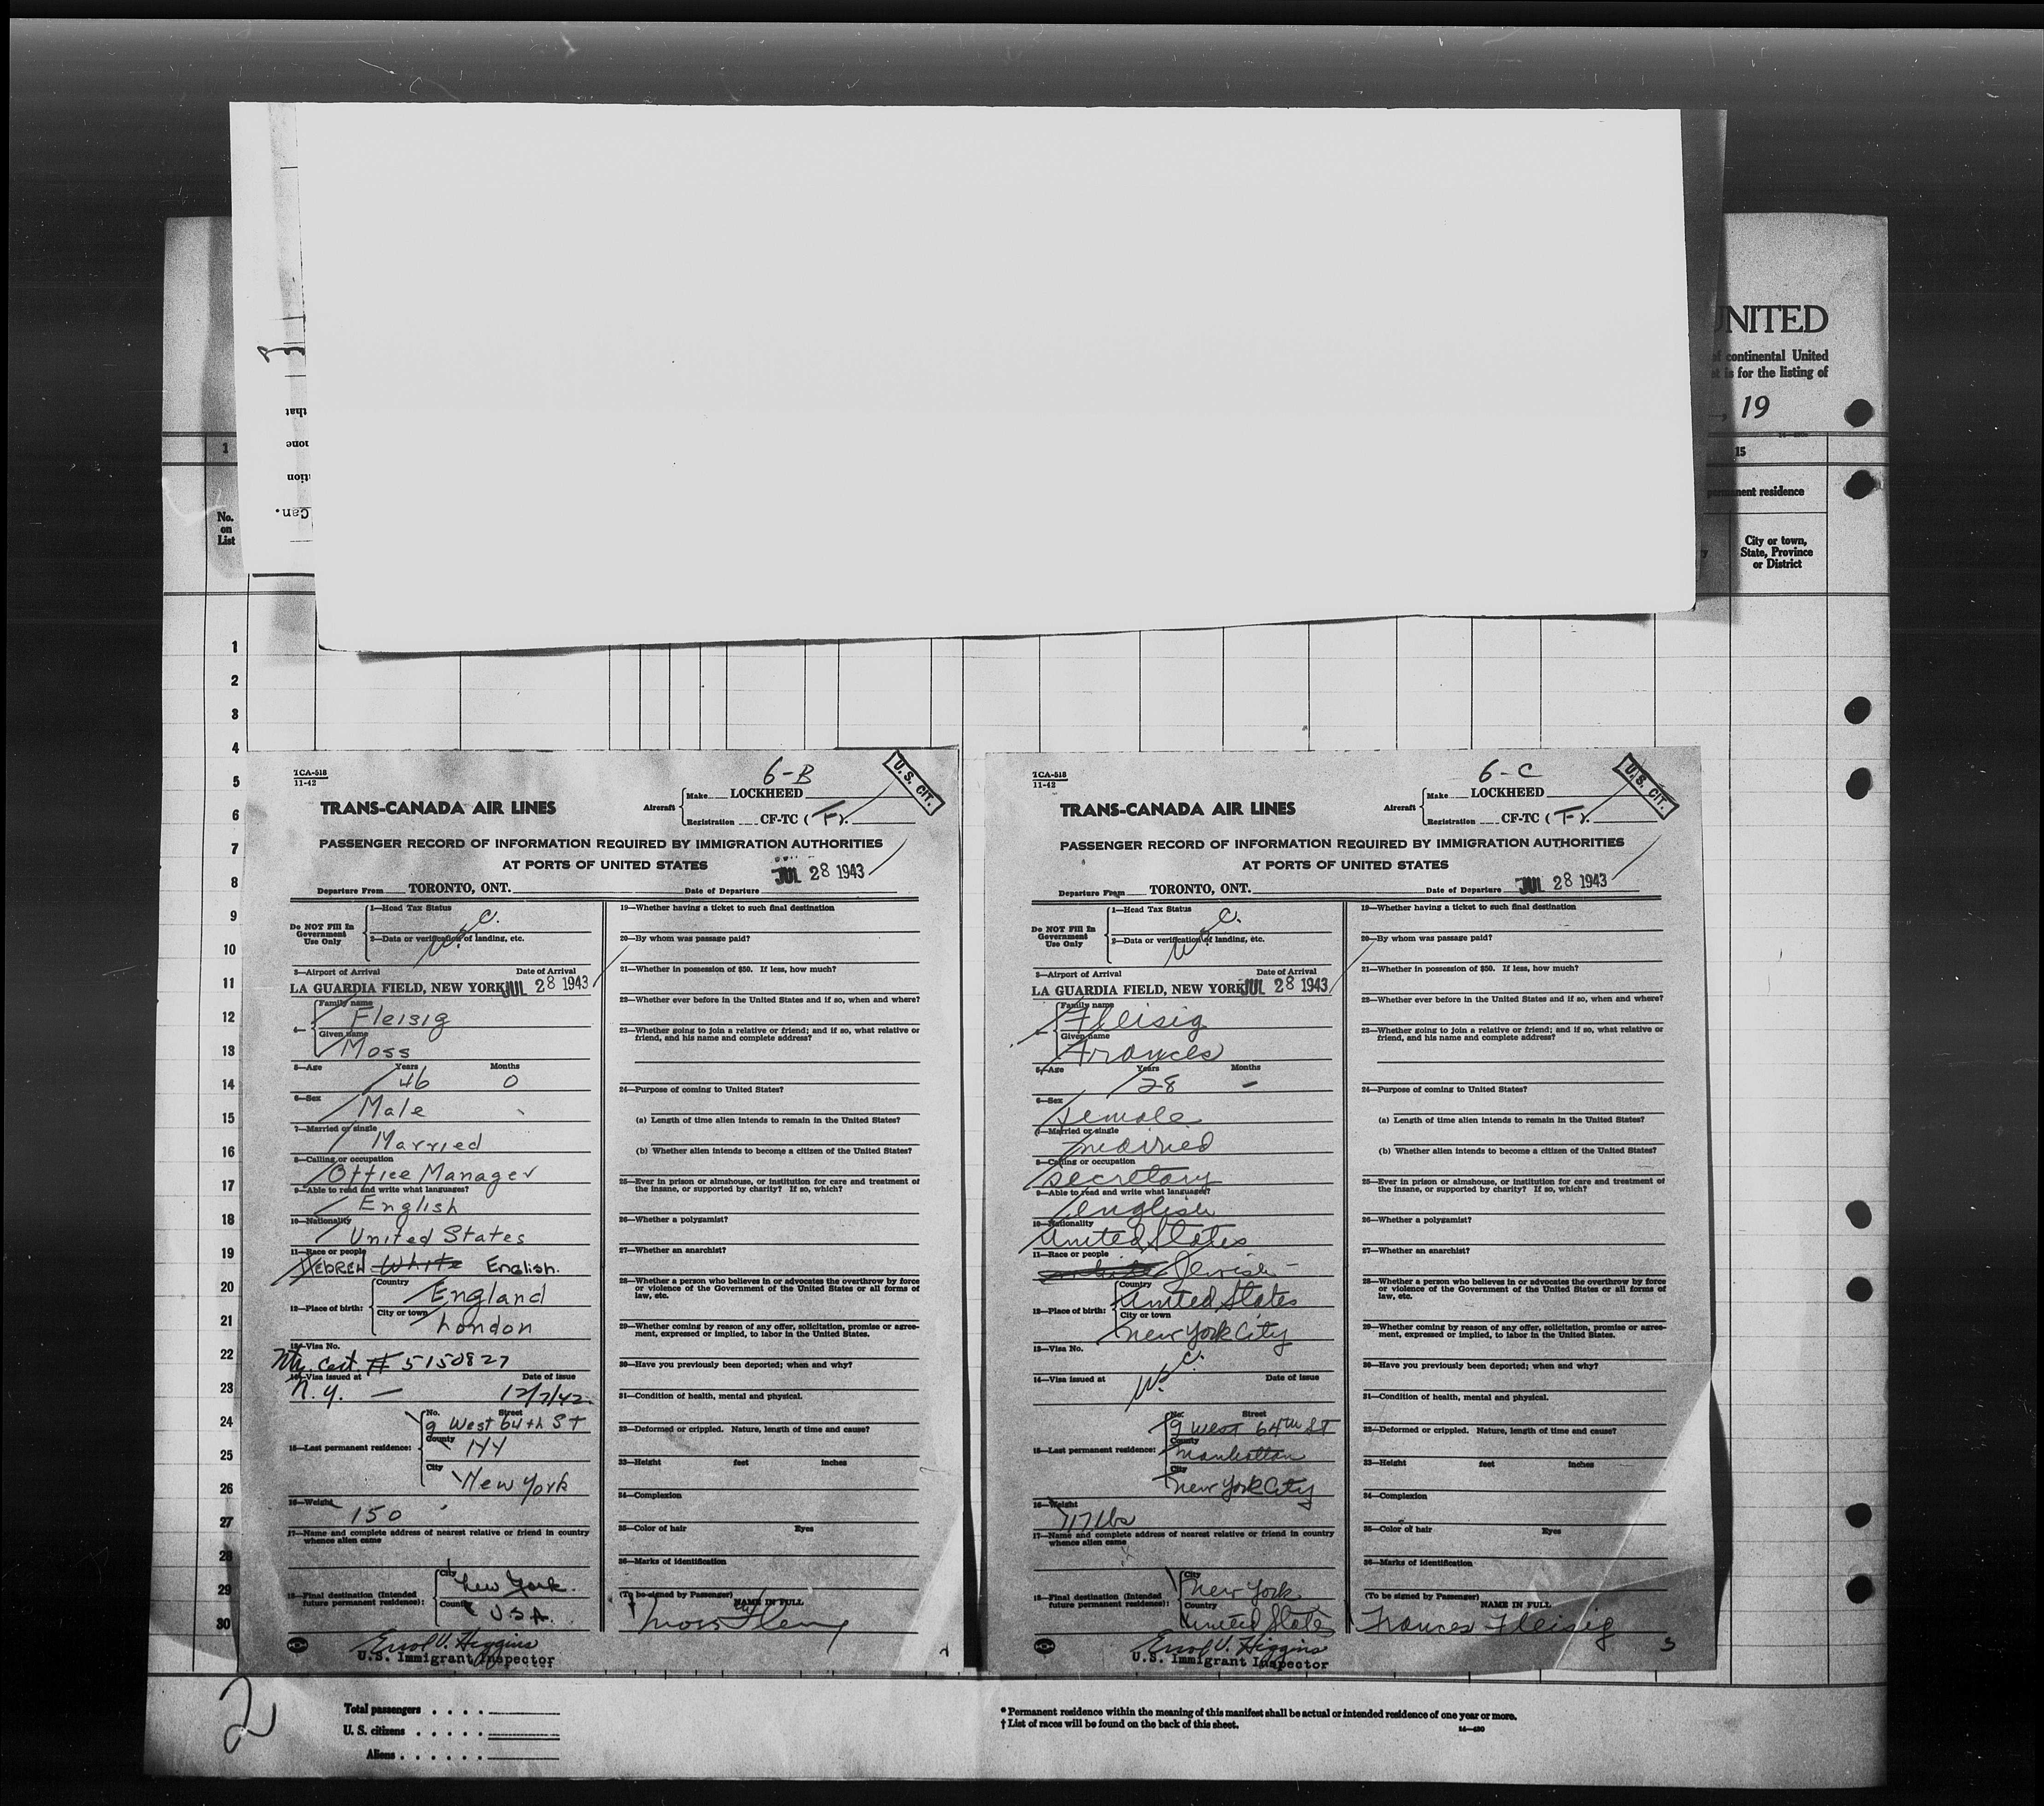 UNITED
of continental United
is for the listing of
19
1
15
that
none
tion
Can.
permanent residence
No.
on
List
City or town,
State, Province
or District
1
2
3
4
5
6
7
8
9
10
11
12
13
14
15
16
17
18
19
20
21
22
23
24
25
26
27
28
29
30
TCA-518
11-42
6-B
U. S. CIT.
TRANS-CANADA AIR LINES
Aircraft
Make LOCKHEED
Registration CF-TC (F).
PASSENGER RECORD OF INFORMATION REQUIRED BY IMMIGRATION AUTHORITIES
AT PORTS OF UNITED STATES
JUL 28 1943
Departure From TORONTO, ONT. Date of Departure
Do NOT Fill In
Government
Use Only
1—Head Tax Status
C.
2—Data or verification of landing, etc.
3—Airport of Arrival Date of Arrival
LA GUARDIA FIELD, NEW YORK JUL 28 1943
4—
Family name
Fleisig
Given name
Moss
5—Age Years Months
46 0
6—Sex
Male
7—Married or single
Married
8—Calling or occupation
Office Manager
9—Able to read and write what languages?
English
10—Nationality
United States
11—Race or people
HEBREW White English.
12—Place of birth:
Country
England
City or town
London
13—Visa No.
Cert. # 5150827
14—Visa issued at Date of issue
N.Y. — 12/7/42
15—Last permanent residence:
No. Street
9 West 64th St
County
NY
City
New York
16—Weight
150
17—Name and complete address of nearest relative or friend in country
whence alien came
18—Final destination (Intended
future permanent residence):
City
New York.
Country
U.S.A.
Errol V. Higgins
U.S. Immigrant Inspector
19—Whether having a ticket to such final destination
20—By whom was passage paid?
21—Whether in possession of $50. If less, how much?
22—Whether ever before in the United States and if so, when and where?
23—Whether going to join a relative or friend; and if so, what relative or
friend, and his name and complete address?
24—Purpose of coming to United States?
(a) Length of time alien intends to remain in the United States?
(b) Whether alien intends to become a citizen of the United States?
25—Ever in prison or almshouse, or institution for care and treatment of
the insane, or supported by charity? If so, which?
26—Whether a polygamist?
27—Whether an anarchist?
28—Whether a person who believes in or advocates the overthrow by force
or violence of the Government of the United States or all forms of
law, etc.
29—Whether coming by reason of any offer, solicitation, promise or agree-
ment, expressed or implied, to labor in the United States.
30—Have you previously been deported; when and why?
31—Condition of health, mental and physical.
32—Deformed or crippled. Nature, length of time and cause?
33—Height feet inches
34—Complexion
35—Color of hair Eyes
36—Marks of identification
(To be signed by Passenger)
NAME IN FULL
Moss
TCA-518
11-42
6-C
U. S. CIT.
TRANS-CANADA AIR LINES
Aircraft
Make LOCKHEED
Registration CF-TC (F).
PASSENGER RECORD OF INFORMATION REQUIRED BY IMMIGRATION AUTHORITIES
AT PORTS OF UNITED STATES
Departure From TORONTO, ONT. Date of Departure JUL 28 1943
Do NOT Fill In
Government
Use Only
1—Head Tax Status
C.
2—Data or verification of landing, etc.
3—Airport of Arrival Date of Arrival
LA GUARDIA FIELD, NEW YORK JUL 28 1943
Family name
Fleisig
Given name
Frances
5—Age Years Months
28 –
6—Sex
female
7—Married or single
married
8—Calling or occupation
secretary
9—Able to read and write what languages?
english
10—Nationality
United States
11—Race or people
white Jewish –
12—Place of birth:
Country
United States
City or town
New York City
13—Visa No.
C.
14—Visa issued at Date of issue
15—Last permanent residence:
No. Street
9 West 64th St
County
Manhattan
City
New York City
16—Weight
117 lbs
17—Name and complete address of nearest relative or friend in country
whence alien came
18—Final destination (Intended
future permanent residence):
City
New York
Country
United States
Errol V. Higgins
U.S. Immigrant Inspector
19—Whether having a ticket to such final destination
20—By whom was passage paid?
21—Whether in possession of $50. If less, how much?
22—Whether ever before in the United States and if so, when and where?
23—Whether going to join a relative or friend; and if so, what relative or
friend, and his name and complete address?
24—Purpose of coming to United States?
(a) Length of time alien intends to remain in the United States?
(b) Whether alien intends to become a citizen of the United States?
25—Ever in prison or almshouse, or institution for care and treatment of
the insane, or supported by charity? If so, which?
26—Whether a polygamist?
27—Whether an anarchist?
28—Whether a person who believes in or advocates the overthrow by force
or violence of the Government of the United States or all forms of
law, etc.
29—Whether coming by reason of any offer, solicitation, promise or agree-
ment, expressed or implied, to labor in the United States.
30—Have you previously been deported; when and why?
31—Condition of health, mental and physical.
32—Deformed or crippled. Nature, length of time and cause?
33—Height feet inches
34—Complexion
35—Color of hair Eyes
36—Marks of identification
(To be signed by Passenger)
NAME IN FULL
Frances Fleisig
3
2
Total passengers . . . .
U. S. citizens . . . . .
Aliens . . . . . .
* Permanent residence within the meaning of this manifest shall be actual or intended residence of one year or more.
† List of races will be found on the back of this sheet.
14—430